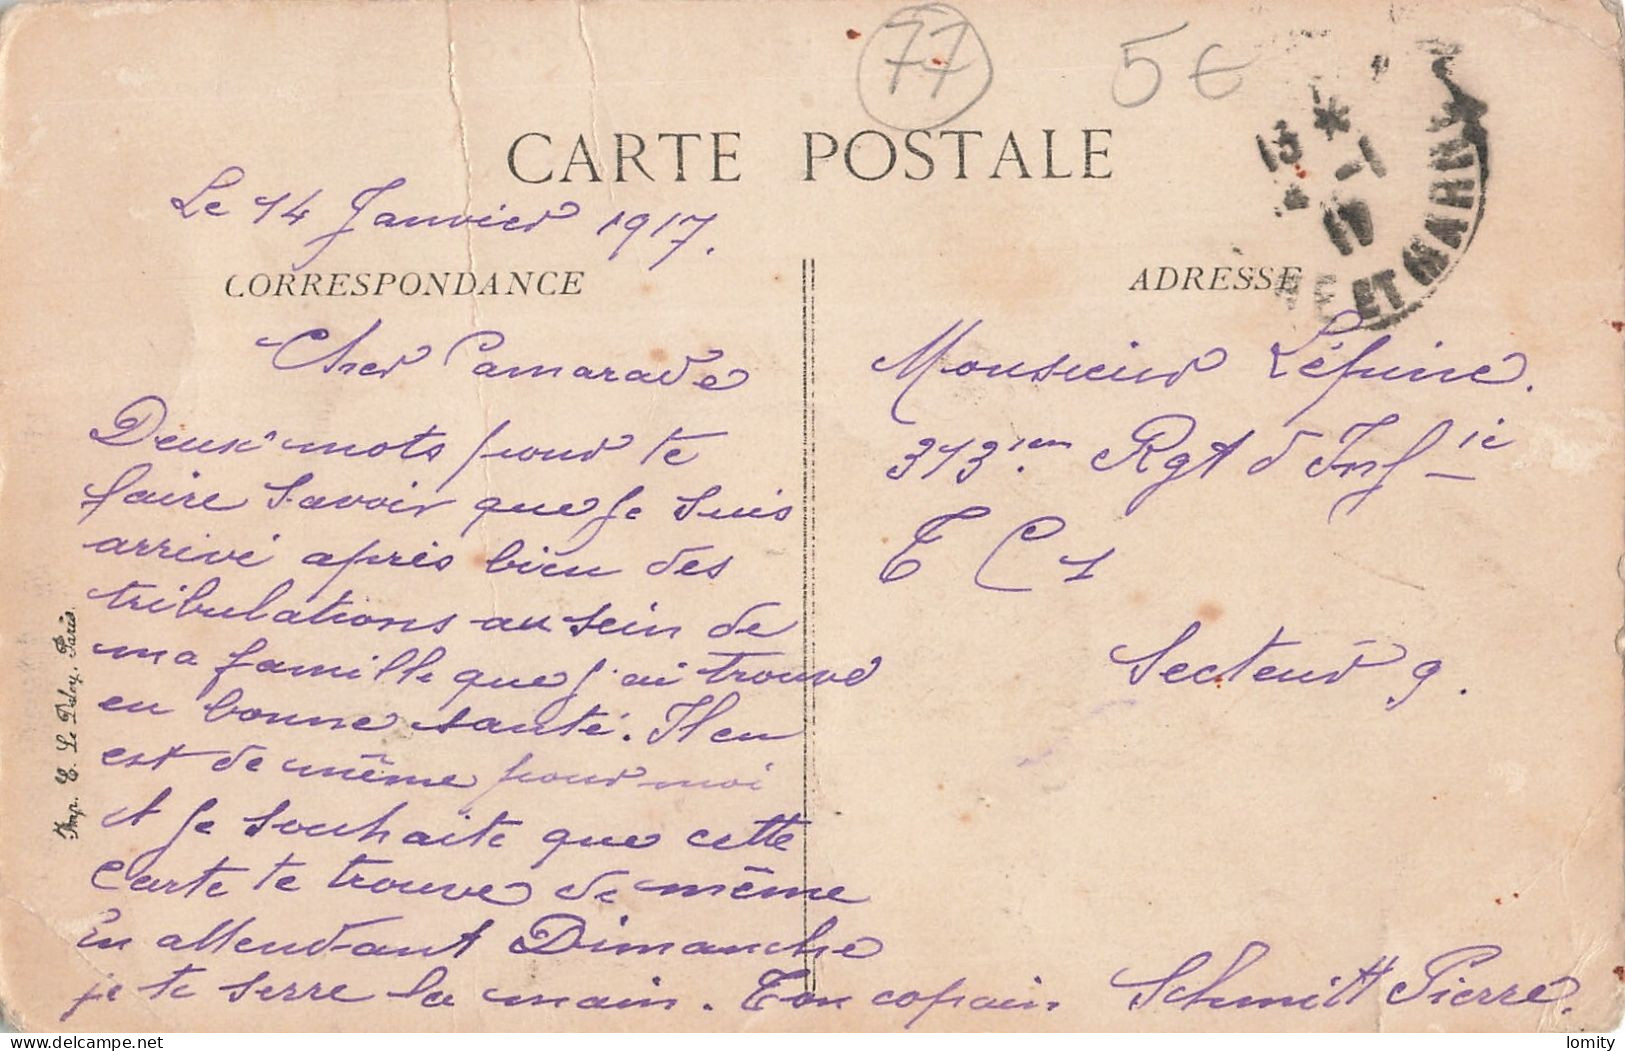 77
5€
CARTE POSTALE
13 * -1 17
NE ET MARNE
Le 14 Janvier 1917.
CORRESPONDANCE
ADRESSE
Cher Camarade
Deux mots pour te
faire savoir que je suis
arrivé après bien des
tribulations au sein de
ma famille que j'ai trouvé
en bonne santé. Il en
est de même pour moi
et je souhaite que cette
carte te trouve de même
En attendant Dimanche
je te serre la main. Ton copain Schmitt Pierre.
Monsieur Lépine.
313 ièm Rgt d'Inf-ie
T C 1
Secteur 9.
Imp. E. Le Deley, Paris
delcampe.net
lomity